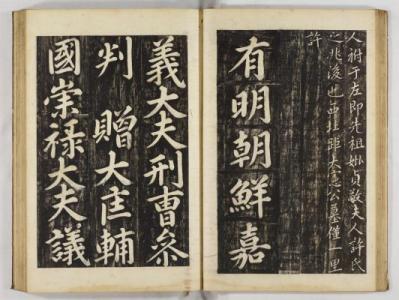 人祔于左即先祖妣貞敬夫人許氏
之兆後也西距大憲公墓僅一里
許
有明朝鮮嘉
義大夫刑曹叅
判 贈大匡輔
國崇祿大夫議